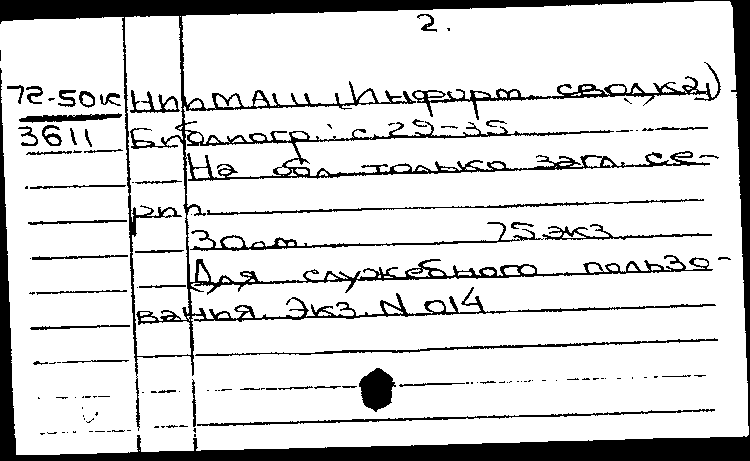 2.
72-50к НИИМАШ (Информ. сводка)
3611 Библиогр.: с. 29-35.
На обл. только загл. се-
рии.
30 от. 75 экз
Для служебного пользо-
вания. Экз. N 014